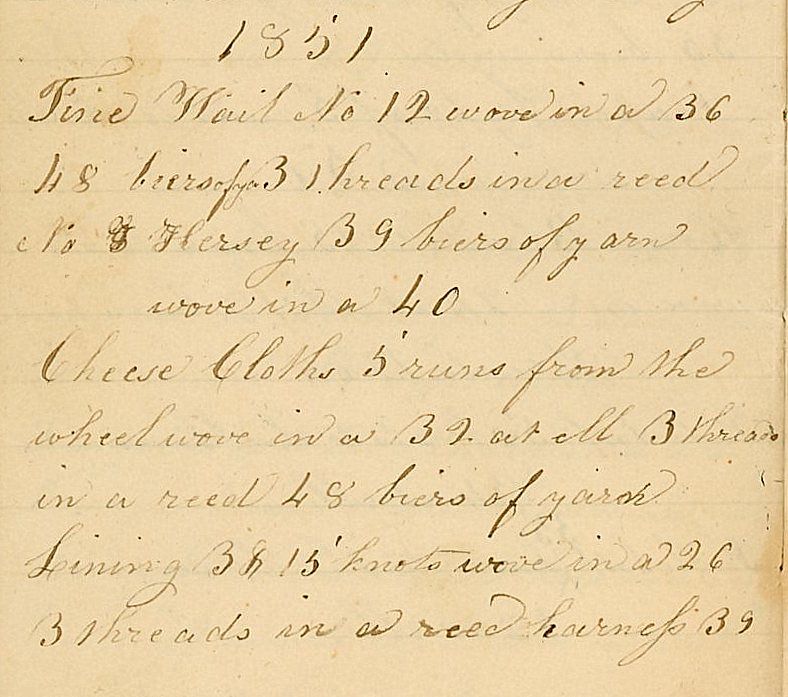 1851
Fine Wail No 12 wove in a 36
48 biers of ya 3 threads in a reed
No 8 Hersey 39 biers of yarn
wove in a 40
Cheese Cloths 5 runs from the
wheel wove in a 32 at ell 3 threads
in a reed 48 biers of yarn
Lining 38 15 knots wove in a 26
3 threads in a reed harness 39